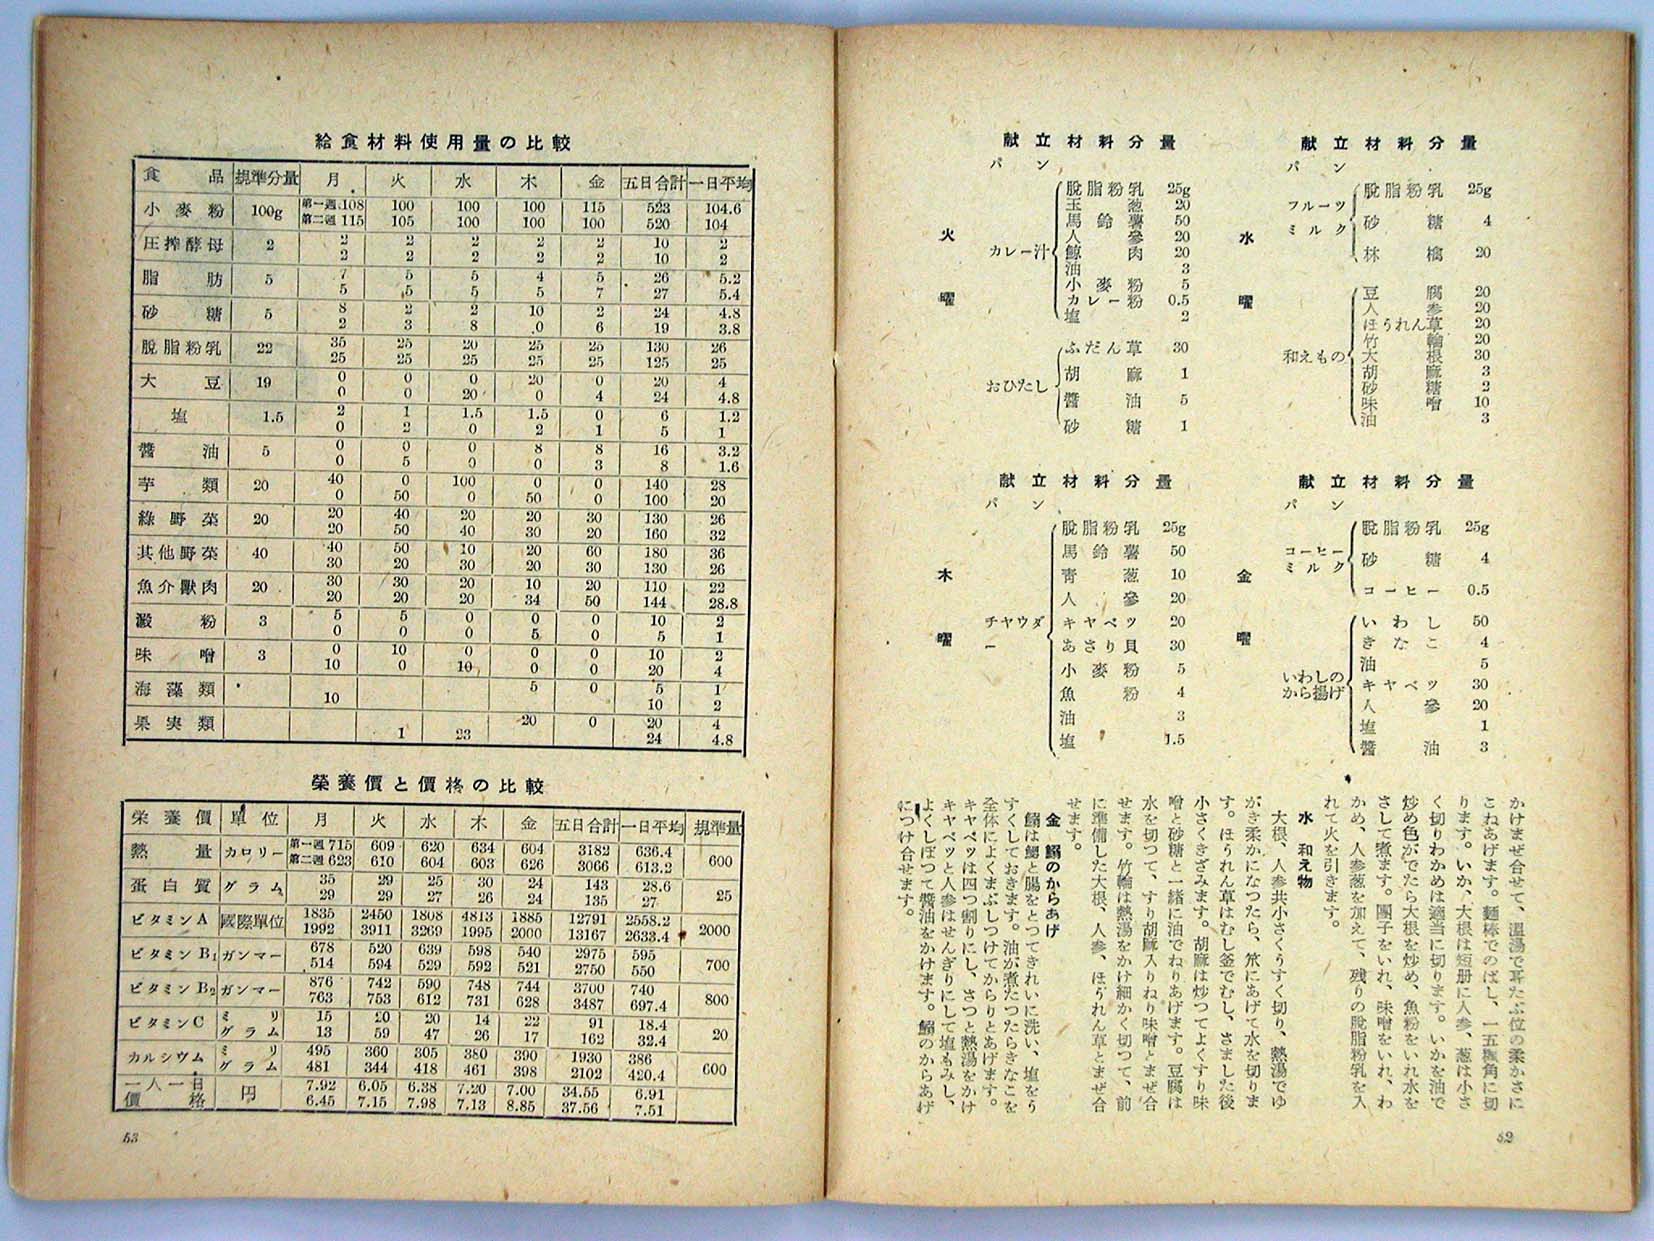 献立材料分量
火曜
パン
カレー汁
脱脂粉乳 25g
玉葱 20
馬鈴薯 50
人參 20
鯨肉 20
油 3
小麥粉 5
カレー粉 0.5
塩 2
おひたし
ふだん草 30
胡麻 1
醬油 5
砂糖 1
献立材料分量
水曜
パン
フルーツミルク
脱脂粉乳 25g
砂糖 4
林檎 20
和えもの
豆腐 20
人参 20
ほうれん草 20
竹輪 20
大根 30
胡麻 3
砂糖 2
味噌 10
油 3
献立材料分量
木曜
パン
チヤウダー
脱脂粉乳 25g
馬鈴薯 50
靑葱 10
人參 20
キヤベツ 20
あさり貝 30
小麥粉 5
魚粉 4
油 3
塩 1.5
献立材料分量
金曜
パン
コーヒーミルク
脱脂粉乳 25g
砂糖 4
コーヒー 0.5
いわしのから揚げ
いわし 50
きなこ 4
油 5
キヤベツ 30
人參 20
塩 1
醬油 3
かけまぜ合せて、溫湯で耳たぶ位の柔かさに
こねあげます。麵棒でのばし、一五糎角に切
ります。いか、大根は短册に人参、葱は小さ
く切りわかめは適当に切ります。いかを油で
炒め色がでたら大根を炒め、魚粉をいれ水を
さして煮ます。團子をいれ、味噌をいれ、わ
かめ、人参葱を加えて、残りの脱脂粉乳を入
れて火を引きます。
水 和え物
大根、人参共小さくうすく切り、熱湯でゆ
がき柔かになつたら、笊にあげて水を切りま
す。ほうれん草はむし釜でむし、さました後
小さくきざみます。胡麻は炒つてよくすり味
噌と砂糖と一緖に油でねりあげます。豆腐は
水を切つて、すり胡麻入りねり味噌とまぜ合
せます。竹輪は熱湯をかけ細かく切つて、前
に準備した大根、人参、ほうれん草とまぜ合
せます。
金 鰯のからあげ
鰯は鰓と腸をとつてきれいに洗い、塩をう
すくしておきます。油が煮たつたらきなこを
全体によくまぶしつけてからりとあげます。
キヤベツは四つ割りにし、さつと熱湯をかけ
キヤベツと人参はせんぎりにして塩もみし、
よくしぼつて醬油をかけます。鰯のからあげ
につけ合せます。
52
給食材料使用量の比較
食品 規準分量 月 火 水 木 金 五日合計 一日平均
小麥粉 100g 第一週 108 100 100 100 115 523 104.6
第二週 115 105 100 100 100 520 104
圧搾酵母 2 2 2 2 2 2 10 2
2 2 2 2 2 10 2
脂肪 5 7 5 5 4 5 26 5.2
5 5 5 5 7 27 5.4
砂糖 5 8 2 2 10 2 24 4.8
2 3 8 0 6 19 3.8
脱脂粉乳 22 35 25 20 25 25 130 26
25 25 25 25 25 125 25
大豆 19 0 0 0 20 0 20 4
0 0 20 0 4 24 4.8
塩 1.5 2 1 1.5 1.5 0 6 1.2
0 2 0 2 1 5 1
醬油 5 0 0 0 8 8 16 3.2
0 5 0 0 3 8 1.6
芋類 20 40 0 100 0 0 140 28
0 50 0 50 0 100 20
綠野菜 20 20 40 20 20 30 130 26
20 50 40 30 20 160 32
其他野菜 40 40 50 10 20 60 180 36
30 20 30 20 30 130 26
魚介獸肉 20 30 30 20 10 20 110 22
20 20 20 34 50 144 28.8
澱粉 3 5 5 0 0 0 10 2
0 0 0 5 0 5 1
味噌 3 0 10 0 0 0 10 2
10 0 10 0 0 20 4
海藻類 5 0 5 1
10 10 2
果実類 20 0 20 4
1 23 24 4.8
榮養價と價格の比較
栄養價 單位 月 火 水 木 金 五日合計 一日平均 規準量
熱量 カロリー 第一週 715 609 620 634 604 3182 636.4 600
第二週 623 610 604 603 626 3066 613.2
蛋白質 グラム 35 29 25 30 24 143 28.6 25
29 29 27 26 24 135 27
ビタミンA 國際單位 1835 2450 1808 4813 1885 12791 2558.2 2000
1992 3911 3269 1995 2000 13167 2633.4
ビタミンB1 ガンマー 678 520 639 598 540 2975 595 700
514 594 529 592 521 2750 550
ビタミンB2 ガンマー 876 742 590 748 744 3700 740 800
763 753 612 731 628 3487 697.4
ビタミンC ミリグラム 15 20 20 14 22 91 18.4 20
13 59 47 26 17 162 32.4
カルシウム ミリグラム 495 360 305 380 390 1930 386 600
481 344 418 461 398 2102 420.4
一人一日價格 円 7.92 6.05 6.38 7.20 7.00 34.55 6.91
6.45 7.15 7.98 7.13 8.85 37.56 7.51
53